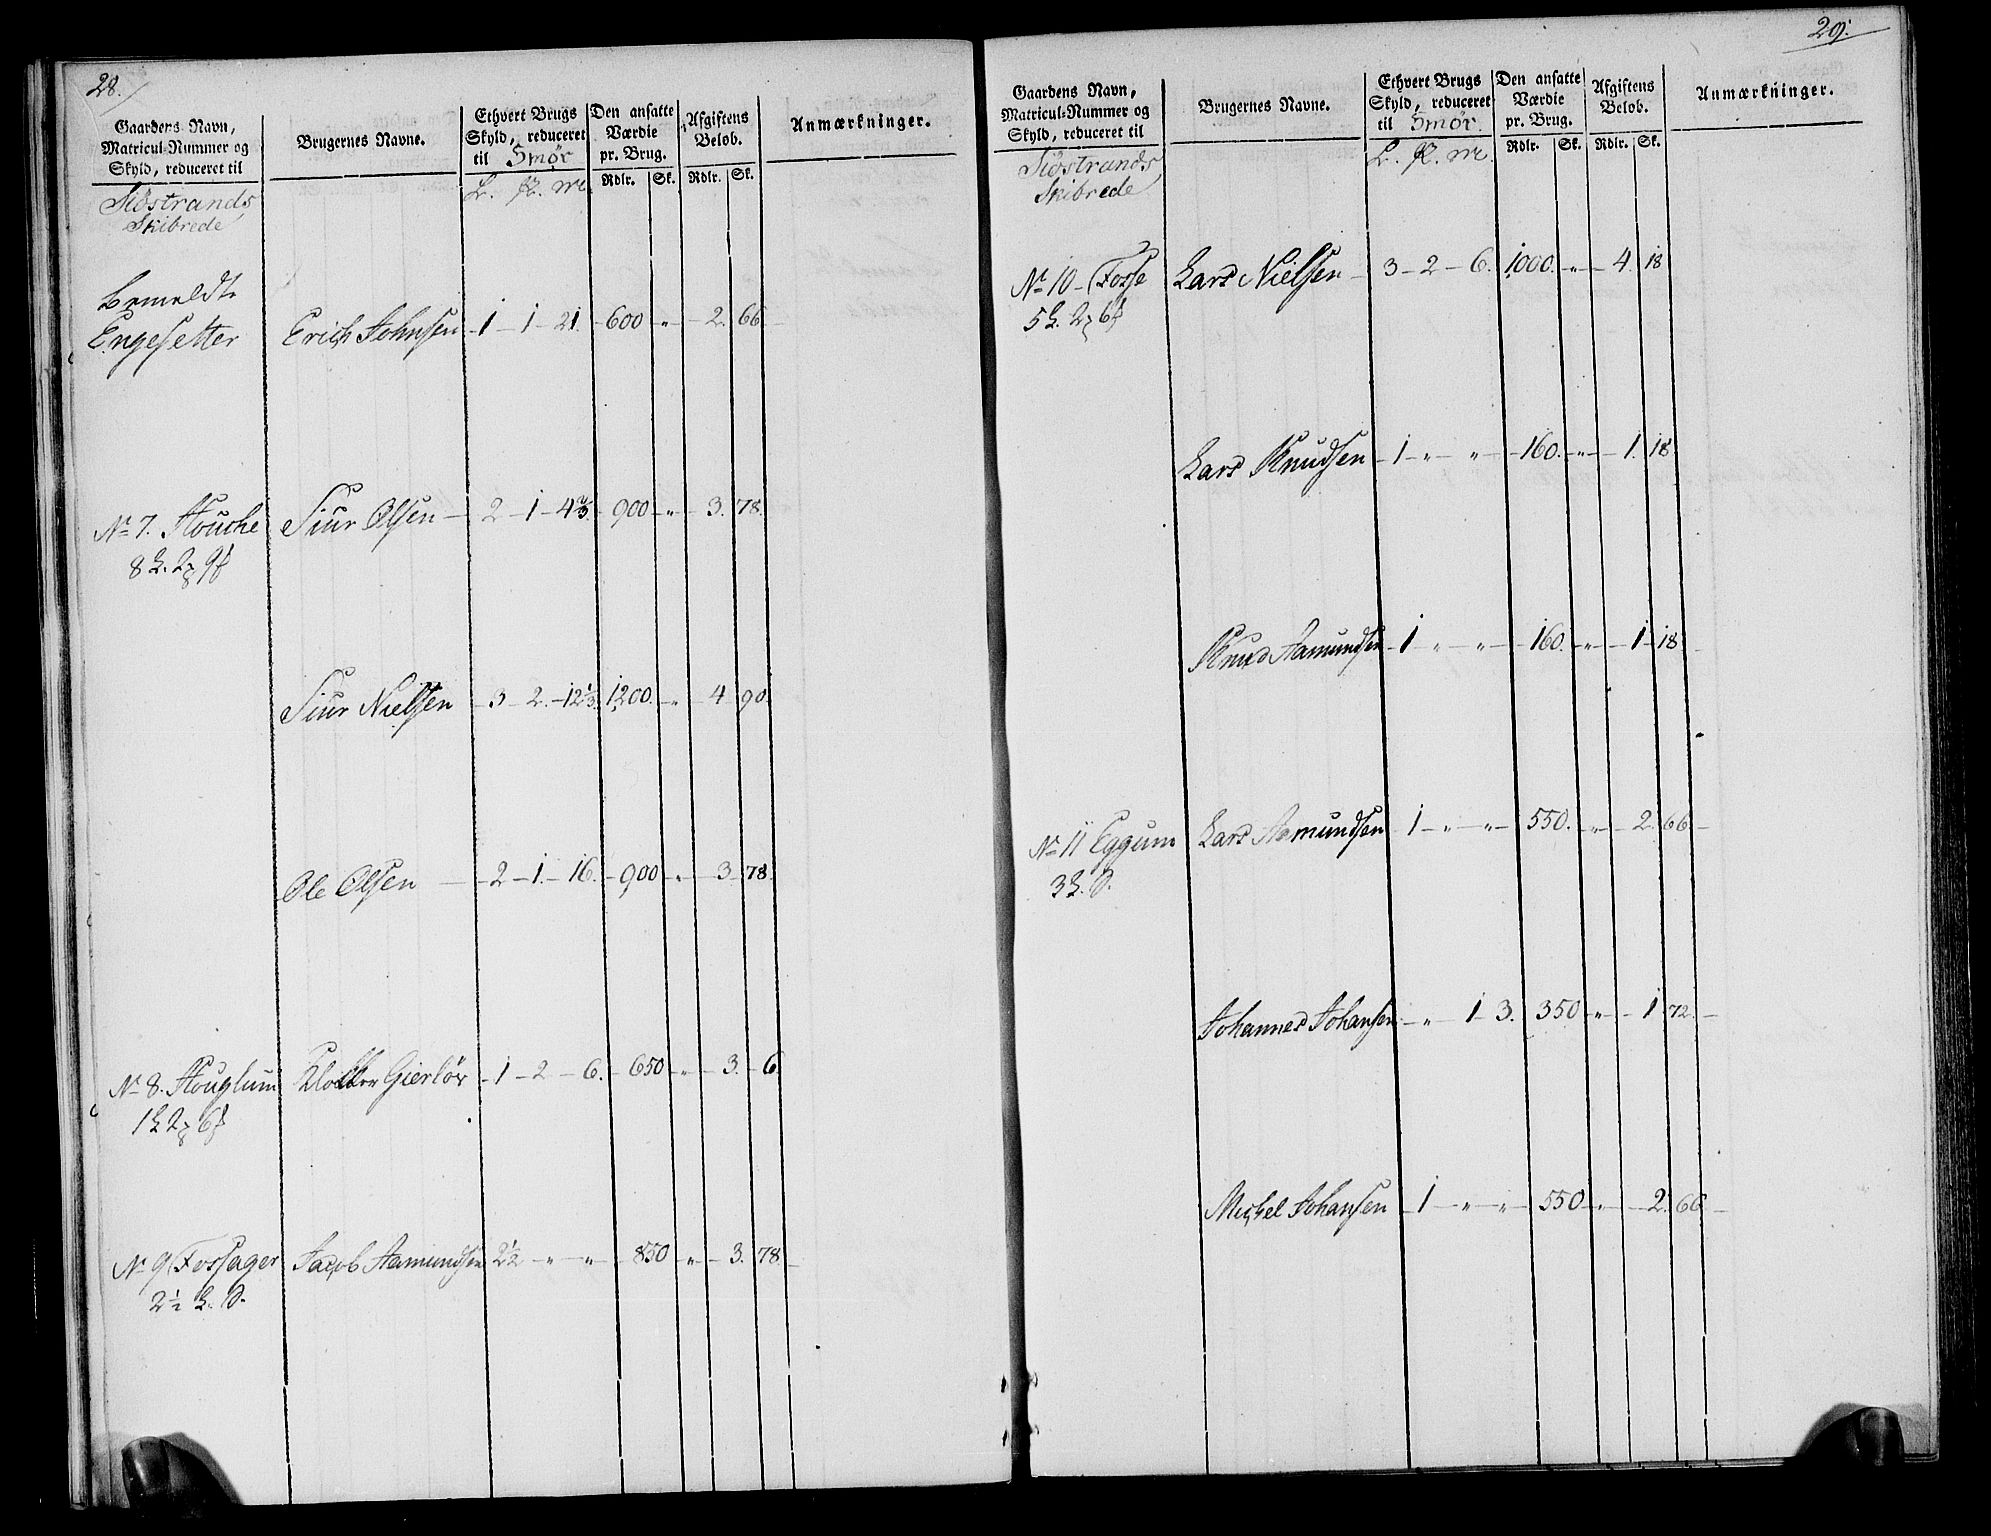 28.
Gaardens Navn,
Matricul-Nummer og
Skyld, reduceret til
Brugernes Navne.
Ethvert Brugs
Skyld, reduceret
til Smør
L. P. M.
Den ansatte
Værdie
pr. Brug.
Rdlr. Sk.
Afgiftens
Belob.
Rdlr. Sk.
Anmærkninger.
Siøstrands
Skibrede
bemeldte
Engesetter Erich Johnsen 1 - 1 - 21. 600 " 2. 66
No 7. Houche Siur Olsen 2 - 1 - 4 2/3. 900 " 3. 78.
8 L. 2 9
Siur Nielsen 3 - 2. - 12 1/3. 1200. " 4 90.
Ole Olsen 2 - 1. - 16. 900 " 3. 78.
No 8. Houglum Klokker Gierløv 1 - 2 - 6. 650 " 3. 6.
1 L 2 6
No 9 Fossager Jacob Aamundsen 2 1/2 " " 850 " 3. 78
2 1/2 L. D.
29.
Gaardens Navn,
Matricul-Nummer og
Skyld, reduceret til
Brugernes Navne.
Ethvert Brugs
Skyld, reduceret
til Smør.
L. P. M.
Den ansatte
Værdie
pr. Brug.
Rdlr. Sk.
Afgiftens
Belob.
Rdlr. Sk.
Anmærkninger.
Siøstrands
Skibrede
No 10 - Fosse Lars Nielsen 3 - 2 - 6. 1000. " 4. 18
5 L. 2 6
Lars Knudsen 1 " " 160. " 1. 18
Knud Aamundsen 1 " " 160. " 1 18
No 11 Eggum Lars Aamundsen 1 " " 550. " 2. 66
3 L. D.
Johannes Johansen " 1 3. 350 " 1 72.
Michel Johansen 1 " " 550 " 2. 66